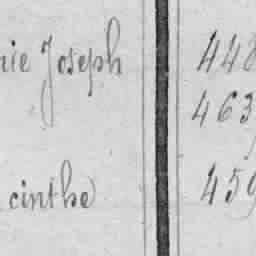 nie Joseph 448
463
cinthe 459